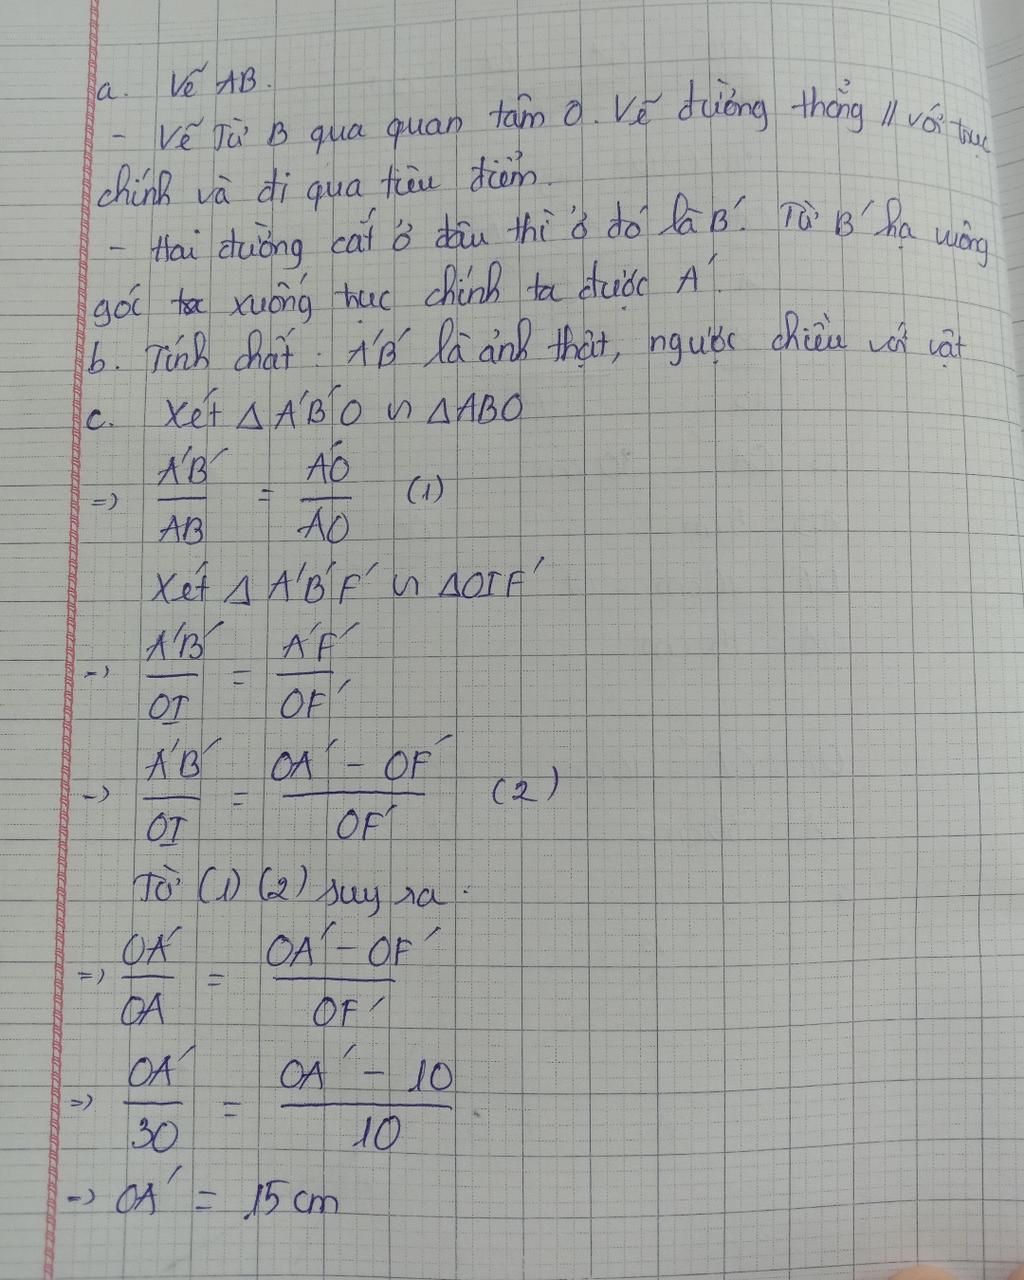 a. Vẽ AB.
- Vẽ Từ B qua quan tâm O. Vẽ đường thẳng // với trục
chính và đi qua tiêu điểm.
- Hai đường cắt ở đâu thì ở đó là B'. Từ B' hạ vuông
góc ta xuống trục chính ta được A'.
b. Tính chất: A'B' là ảnh thật, ngược chiều với vật
c. Xét Δ A'B'O ∽ ΔABO
=> A'B'/AB = A'O/AO (1)
Xét Δ A'B'F' ∽ ΔOIF'
-> A'B'/OI = A'F'/OF'
-> A'B'/OI = OA' - OF'/OF' (2)
Từ (1) (2) suy ra.
=> OA'/OA = OA' - OF'/OF'
=> OA'/30 = OA' - 10/10
-> OA' = 15 cm